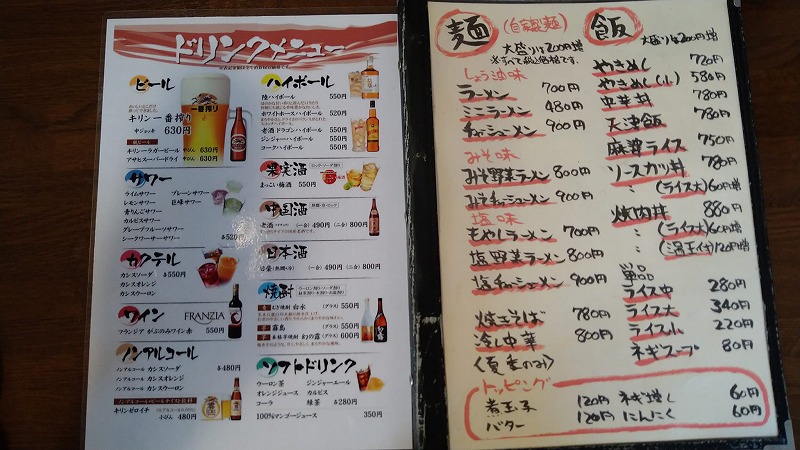 ドリンクメニュー
ビール
キリン一番搾り
中ジョッキ 630円
瓶ビール
キリンラガービール 中びん 630円
アサヒスーパードライ 中びん 630円
サワー
ライムサワー プレーンサワー
レモンサワー 巨峰サワー
青りんごサワー
カルピスサワー
グレープフルーツサワー
シークワーサーサワー 各520円
カクテル
カシスソーダ 各550円
カシスオレンジ
カシスウーロン
ワイン
FRANZIA
フランジア がぶのみワイン赤 550円
ノンアルコール
ノンアルコール カシスソーダ 各480円
ノンアルコール カシスオレンジ
ノンアルコール カシスウーロン
ノンアルコールビールテイスト飲料
キリンゼロイチ
小びん 480円
ハイボール
陸ハイボール 550円
ホワイトホースハイボール 520円
老酒 ドラゴンハイボール 550円
ジンジャーハイボール 550円
コークハイボール 550円
果実酒
ロック・ソーダ割り
まっこい梅酒 550円
中国酒
老酒 (一合) 490円 (二合) 800円
日本酒
(一合) 490円 (二合) 800円
焼酎
むぎ焼酎 白水 (グラス) 550円
霧島 (グラス) 550円
本格芋焼酎 幻の露 (グラス) 600円
ソフトドリンク
ウーロン茶 ジンジャーエール
オレンジジュース カルピス
コーラ 緑茶 各280円
100%マンゴージュース 350円
麺 (自家製麺)
大盛りは200円増
※すべて税込価格です。
しょう油味
ラーメン 700円
ミニラーメン 480円
チャーシューメン 900円
みそ味
みそ野菜ラーメン 800円
みそチャーシューメン 900円
塩味
もやしラーメン 700円
塩野菜ラーメン 800円
塩チャーシューメン 900円
焼きそば 780円
冷し中華 800円
(夏季のみ)
飯
大盛りは200円増
やきめし 720円
やきめし(小) 580円
中華丼 780円
天津飯 780円
麻婆ライス 750円
ソースカツ丼 780円
〃 (ライス大) 60円増
焼肉丼 880円
〃 (ライス大) 60円増
〃 (温玉付) 120円増
単品
ライス中 280円
ライス大 340円
ライス小 220円
ネギスープ 80円
トッピング
煮玉子 120円 ネギ増し 60円
バター 120円 にんにく 60円